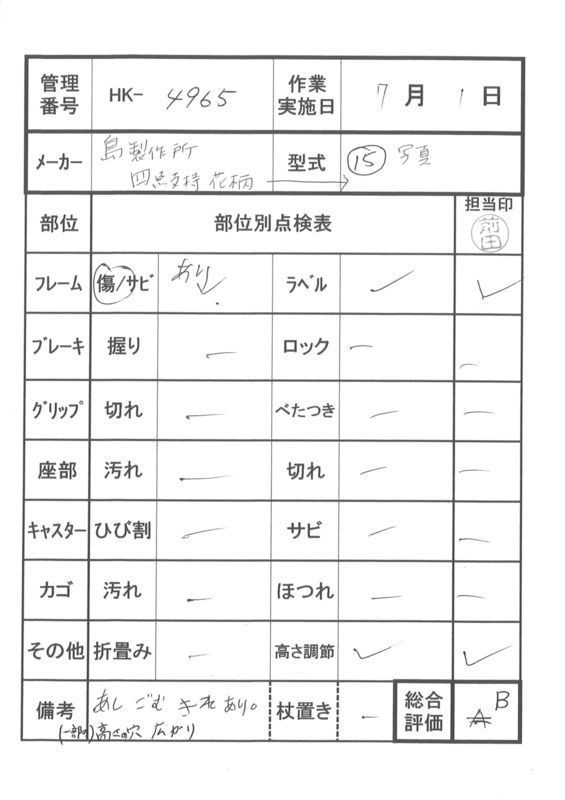 管理番号 HK- 4965 作業実施日 7月 1日
メーカー 島製作所 型式 ⑮ 写真
四点支持 花柄
部位 部位別点検表 担当印 前田
フレーム 傷/サビ あり ✓ ラベル ✓ ✓
ブレーキ 握り ー ロック ー ー
グリップ 切れ ー べたつき ー ー
座部 汚れ ー 切れ ー ー
キャスター ひび割 ー サビ ー ー
カゴ 汚れ ー ほつれ ー ー
その他 折畳み ー 高さ調節 ✓ ✓
備考 あし ごむ きれ あり。 杖置き ー 総合評価 A B
高さの穴 広がり